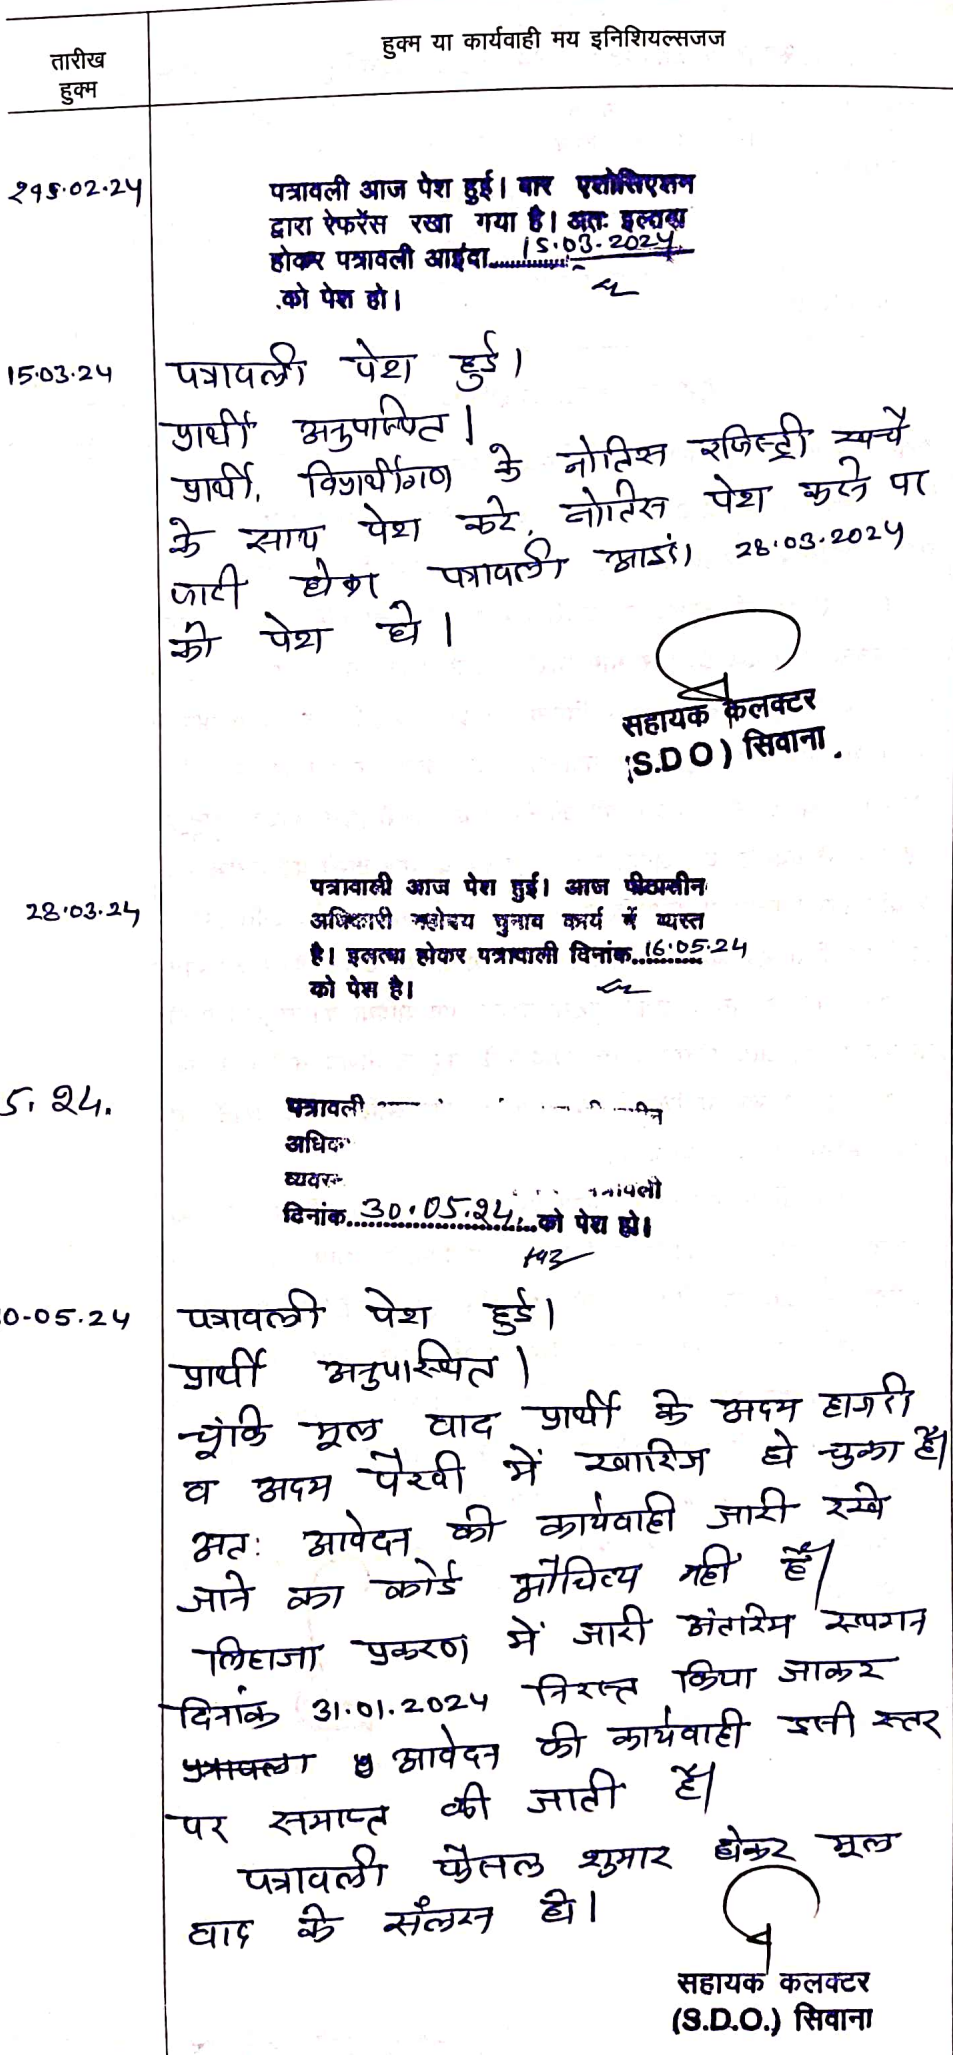 तारीख
हुक्म
हुक्म या कार्यवाही मय इनिशियल्सजज
15.02.24
पत्रावली आज पेश हुई। बार एसोसिएशन
द्वारा रेफरेंस रखा गया है। अतः इल्तवा
होकर पत्रावली आइंदा 15.03.2024
को पेश हो।
15.03.24
पत्रावली पेश हुई।
प्रार्थी अनुपस्थित।
प्रार्थी, विप्रार्थीगण के नोटिस रजिस्ट्री खर्चे
के साथ पेश करे, नोटिस पेश करने पर
जारी होकर पत्रावली आइं। 28.03.2024
को पेश हो।
सहायक कलक्टर
(S.D.O) सिवाना
28.03.24
पत्रावाली आज पेश हुई। आज पीठासीन
अधिकारी महोदय चुनाव कार्य में व्यस्त
है। इलतवा होकर पत्रावाली दिनांक 16.05.24
को पेश है।
5.24.
पत्रावली
दिनांक 30.05.24. को पेश हो।
0-05.24
पत्रावली पेश हुई।
प्रार्थी अनुपस्थित।
चूंकि मूल वाद प्रार्थी के अदम हाजरी
व अदम पैरवी में खारिज हो चुका है।
अतः आवेदन की कार्यवाही जारी रखे
जाने का कोई औचित्य नहीं है।
लिहाजा प्रकरण में जारी अंतरिम स्थगन
दिनांक 31.01.2024 निरस्त किया जाकर
पत्रावली आवेदन की कार्यवाही इसी स्तर
पर समाप्त की जाती है।
पत्रावली फैसल शुमार होकर मूल
वाद के संलग्न हो।
सहायक कलक्टर
(S.D.O.) सिवाना